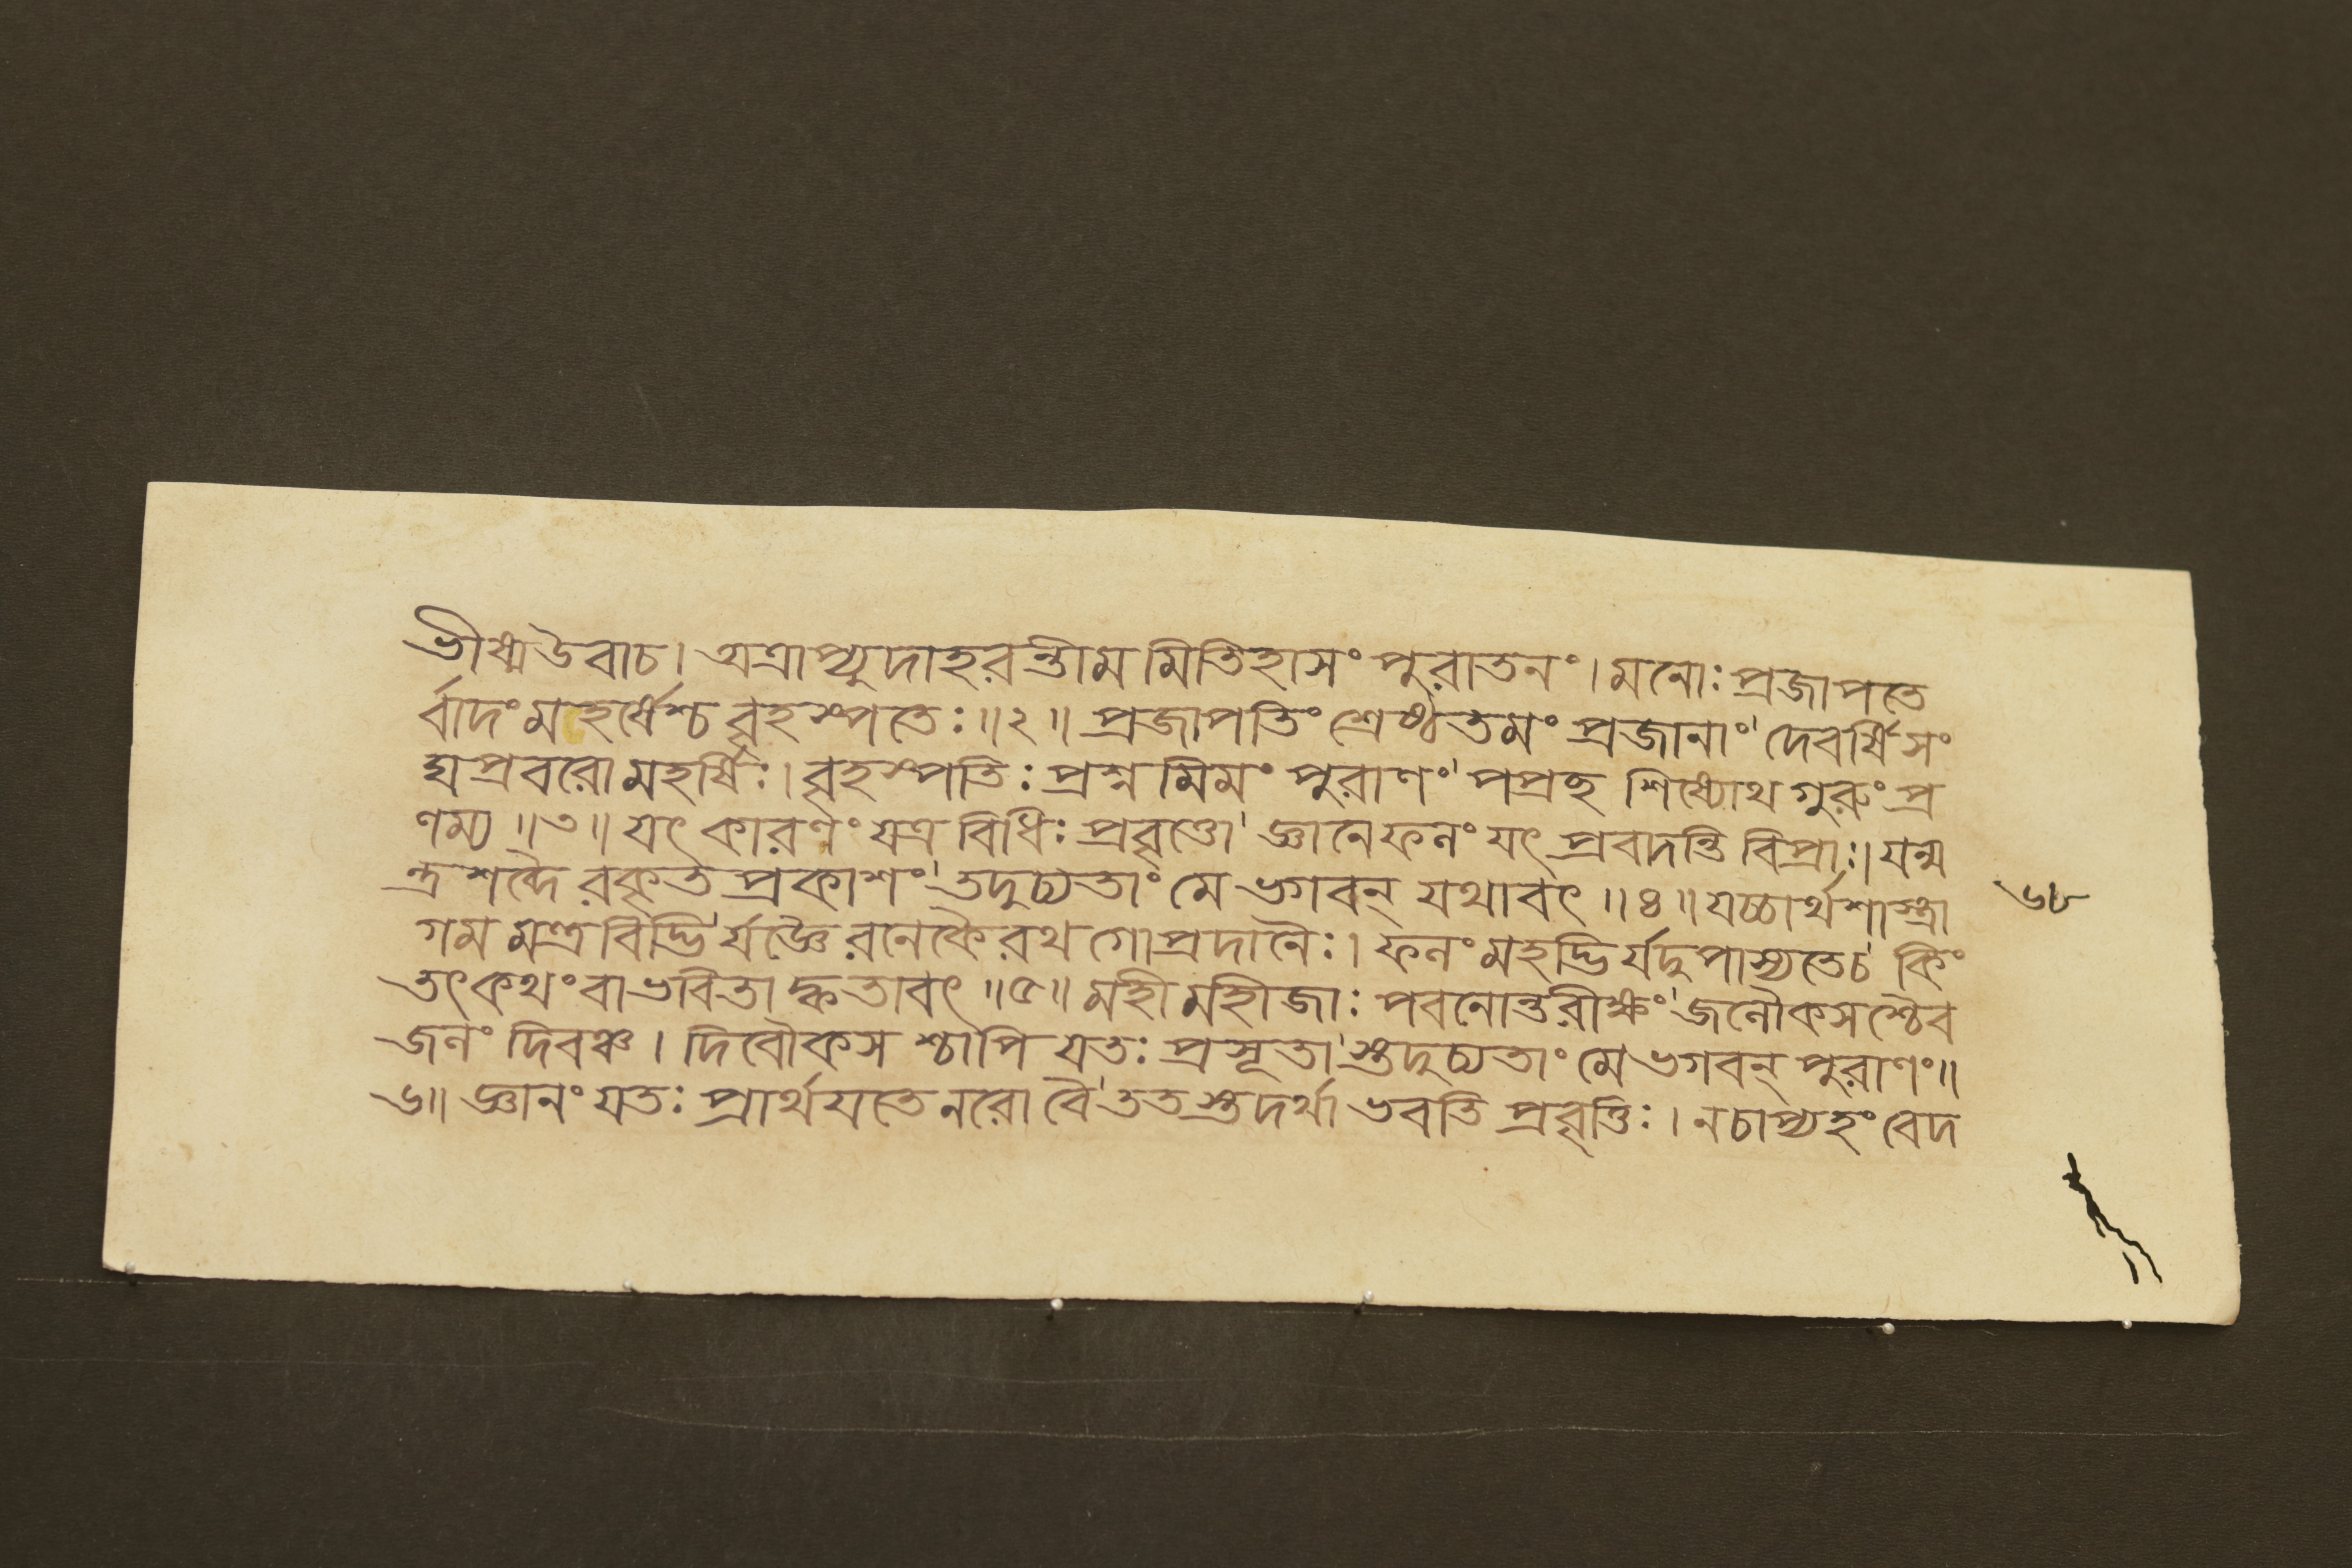 ভীষ্মউবাচ। অত্রাপ্যুদাহরন্তীমমিতিহাসং পুরাতনং। মনোঃ প্রজাপতে
র্বাদং মহর্ষেশ্চ বৃহস্পতেঃ॥২॥ প্রজাপতিং শ্রেষ্ঠতমং প্রজানাং' দেবর্ষিসং
ঘপ্রবরো মহর্ষিঃ। বৃহস্পতিঃ প্রশ্নমিমং পুরাণং' পপ্রচ্ছ শিষ্যোথ গুরুং প্র
ণম্য॥৩॥ যৎ কারণং যত্র বিধিঃ প্রবৃত্তো' জ্ঞানেফলং যৎ প্রবদন্তি বিপ্রাঃ। যন্ম
ন্ত্রশব্দৈরকৃতপ্রকাশং' তদুচ্যতাং মে ভগবন্ যথাবৎ॥৪॥ যচ্চার্থশাস্ত্রা
৬৮
গমমন্ত্রবিদ্ভির্যজ্ঞৈরনেকৈরথ গোপ্রদানৈঃ। ফলং মহদ্ভির্যদুপাস্যতেচ' কিং
তৎকথংবাভবিতাদ্ধতাবৎ॥৫॥ মহী মহীজাঃ পবনোন্তরীক্ষং' জলৌকসশ্চৈব
জলং দিবঞ্চ। দিবৌকসশ্চাপি যতঃ প্রসূতা'স্তদুচ্যতাং মে ভগবন্ পুরাণং॥
৬॥ জ্ঞানং যতঃ প্রার্থযতে নরো বৈ' ততস্তদর্থা ভবতি প্রবৃত্তিঃ। নচাপ্যহং বেদ